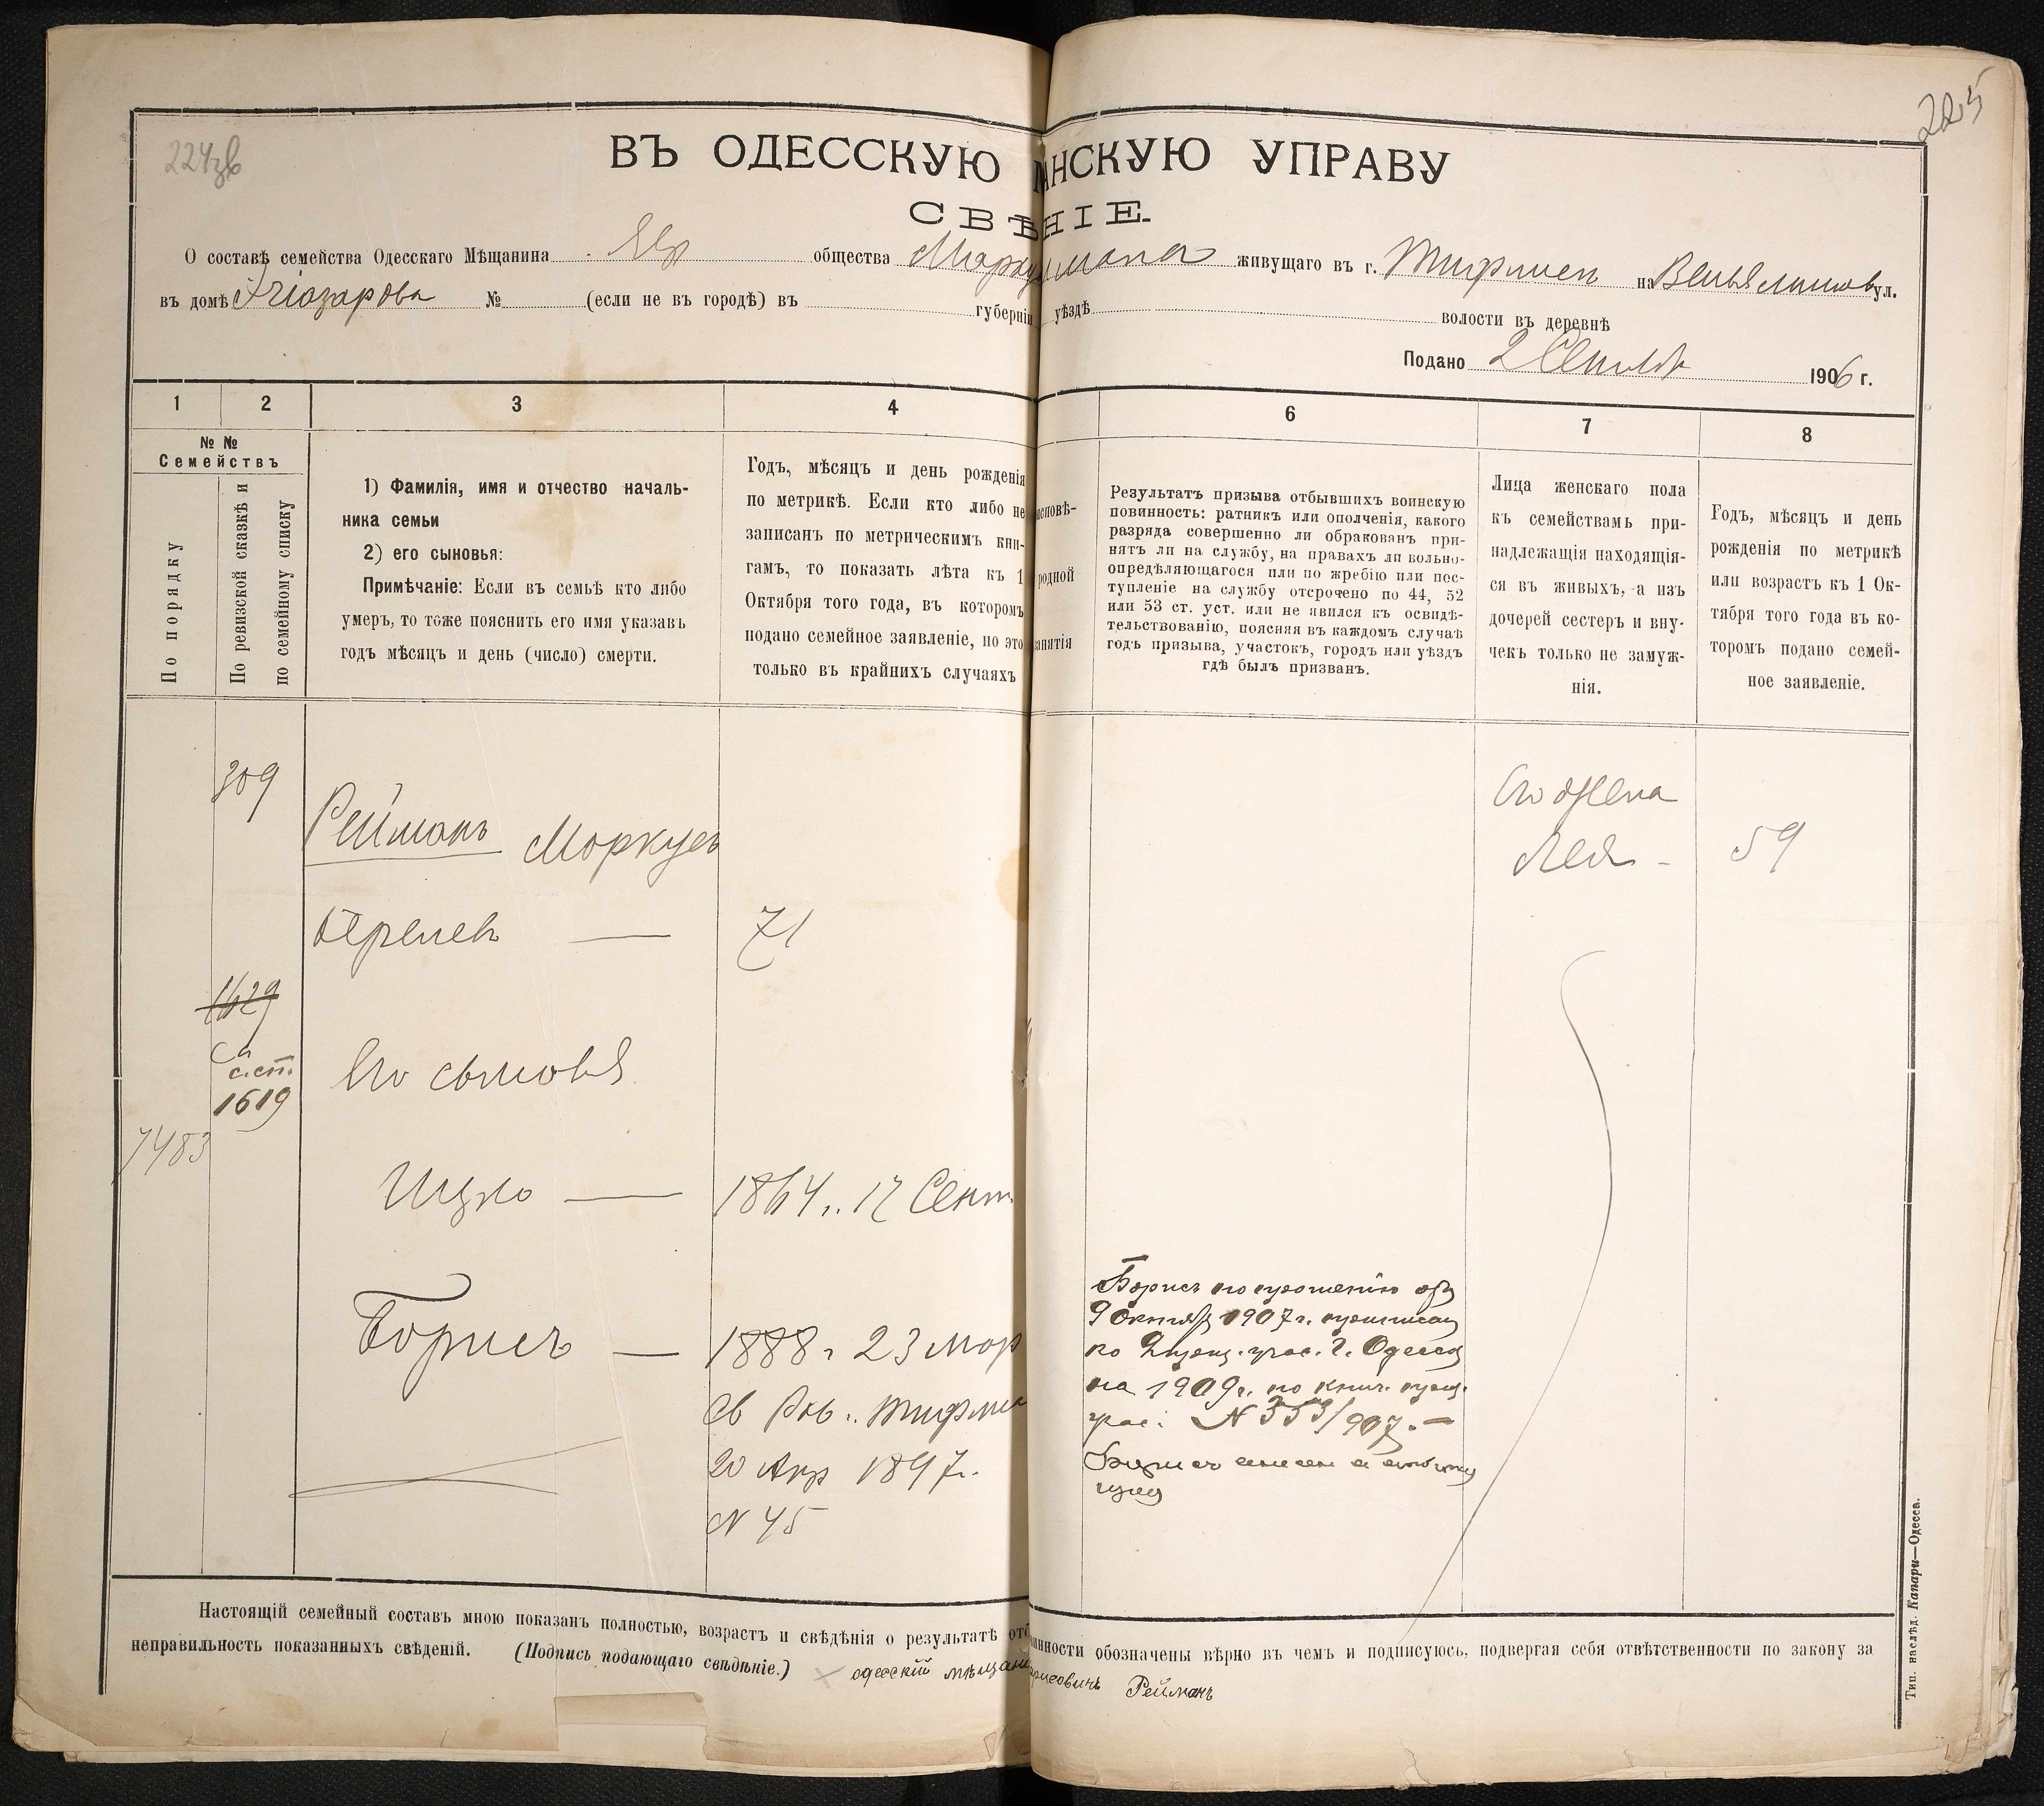 224зв
225
ВЪ ОДЕССКУЮ АНСКУЮ УПРАВУ
СВѢНІЕ.
О составѣ семейства Одесскаго Мѣщанина Евр общества живущаго въ г. на ул.
въ домѣ № (если не въ городѣ) въ губерніи уѣздѣ волости въ деревнѣ
Подано 2 1906 г.
1 2 3 4 6 7 8
№ №
Семействъ
По порядку
По ревизской сказкѣ и
по семейному списку
1) Фамилія, имя и отчество началь-
ника семьи
2) его сыновья:
Примѣчаніе: Если въ семьѣ кто либо
умеръ, то тоже пояснить его имя указавъ
годъ мѣсяцъ и день (число) смерти.
Годъ, мѣсяцъ и день рожденія
по метрикѣ. Если кто либо не
записанъ по метрическимъ кни-
гамъ, то показать лѣта къ 1
Октября того года, въ которомъ
подано семейное заявленіе, но это
только въ крайнихъ случаяхъ
исповѣ-
родной
занятія
Результатъ призыва отбывшихъ воинскую
повинность: ратникъ или ополченія, какого
разряда совершенно ли обракованъ при-
нятъ ли на службу, на правахъ ли вольно-
опредѣляющагося или по жребію или пос-
тупленіе на службу отсрочено по 44, 52
или 53 ст. уст. или не явился къ освидѣ-
тельствованію, поясняя въ каждомъ случаѣ
годъ призыва, участокъ, городъ или уѣздъ
гдѣ былъ призванъ.
Лица женскаго пола
къ семействамъ при-
надлежащія находящія-
ся въ живыхъ, а изъ
дочерей сестеръ и вну-
чекъ только не замуж-
нія.
Годъ, мѣсяцъ и день
рожденія по метрикѣ
или возрастъ къ 1 Ок-
тября того года въ ко-
торомъ подано семей-
ное заявленіе.
309
Рейманъ Маркусъ
Его жена
Лея - 59
Берелев — 71
1629
с.сп.
1619
Его сыновья
7483
Ицко — 1864 г. 12 Сент
Борисъ — 1888 г. 23 мар
Св Рав. Тифли
20 Апр 1897 г.
N 45
Борисъ по прошенію
9 Октября 1907 г.
ко 2 г. Одессы
на 1909 г. по
N 353/907. —
Борисъ
Настоящій семейный составъ мною показанъ полностью, возрастъ и свѣдѣнія о результатѣ отб инности обозначены вѣрно въ чемъ и подписуюсь, подвергая себя отвѣтственности по закону за
неправильность показанныхъ свѣдѣній. (Подпись подающаго свѣдѣніе.) одесскій мѣщани Рейманъ
Тип. наслѣд. Капари—Одесса.